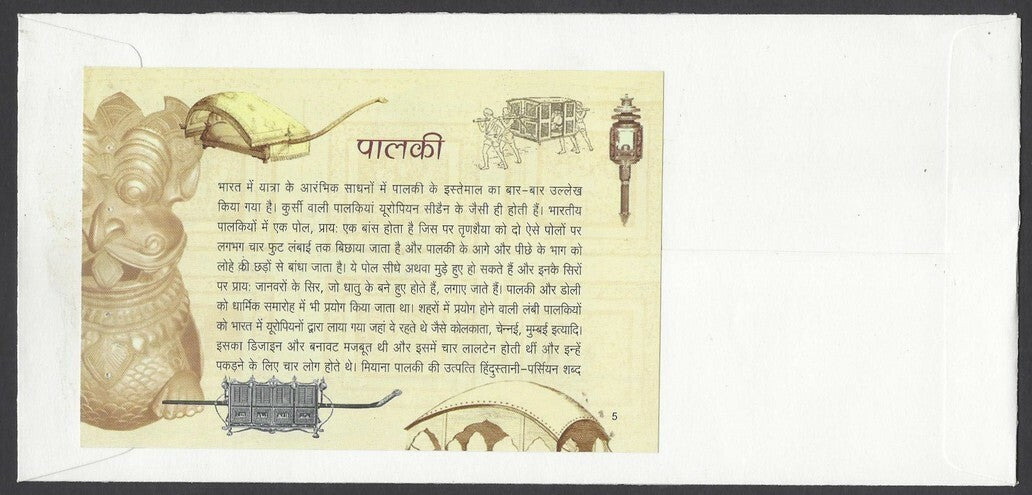 पालकी
भारत में यात्रा के आरंभिक साधनों में पालकी के इस्तेमाल का बार-बार उल्लेख
किया गया है। कुर्सी वाली पालकियां यूरोपियन सीडैन के जैसी ही होती हैं। भारतीय
पालकियों में एक पोल, प्राय: एक बांस होता है जिस पर तृणशैया को दो ऐसे पोलों पर
लगभग चार फुट लंबाई तक बिछाया जाता है और पालकी के आगे और पीछे के भाग को
लोहे की छड़ों से बांधा जाता है। ये पोल सीधे अथवा मुड़े हुए हो सकते हैं और इनके सिरों
पर प्राय: जानवरों के सिर, जो धातु के बने हुए होते हैं, लगाए जाते हैं। पालकी और डोली
को धार्मिक समारोह में भी प्रयोग किया जाता था। शहरों में प्रयोग होने वाली लंबी पालकियों
को भारत में यूरोपियनों द्वारा लाया गया जहां वे रहते थे जैसे कोलकाता, चेन्नई, मुम्बई इत्यादि।
इसका डिजाइन और बनावट मजबूत थी और इसमें चार लालटेन होती थीं और इन्हें
पकड़ने के लिए चार लोग होते थे। मियाना पालकी की उत्पत्ति हिंदुस्तानी-पर्सियन शब्द
5